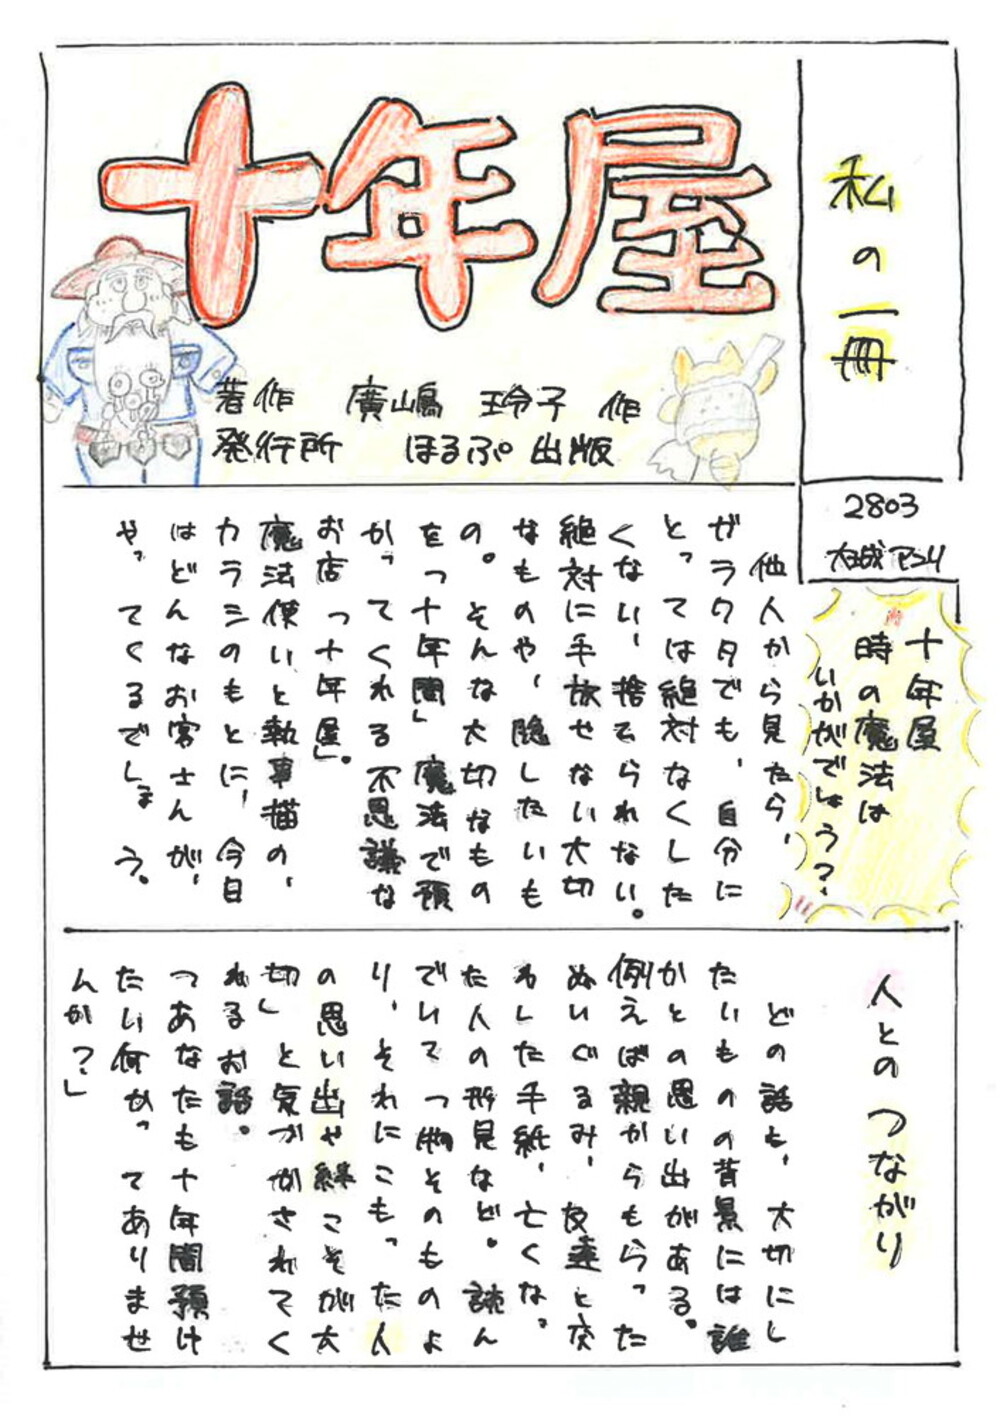 私の一冊
十年屋
著作 廣嶋 玲子 作
発行所 ほるぷ出版
2803
十年屋
時の魔法は
いかがでしょう?
他人から見たら、
ガラクタでも、自分に
とっては絶対なくした
くない、捨てられない。
絶対に手放せない大切
なものや、隠したいも
の。そんな大切なもの
をっ十年間」魔法で預
かってくれる不思議な
お店「十年屋」。
魔法使いと執事猫の、
カラシのもとに、今日
はどんなお客さんが、
やってくるでしょう。
人とのつながり
どの話も、大切にし
たいものの背景には誰
かとの思い出がある。
例えば親からもらった
ぬいぐるみ、友達と交
わした手紙、亡くなっ
た人の形見など。読ん
でいて「物そのものよ
り、それにこもった人
の思い出や絆こそが大
切」と気づかされてく
れるお話。
「あなたも十年間預け
たい何かってありませ
んか?」